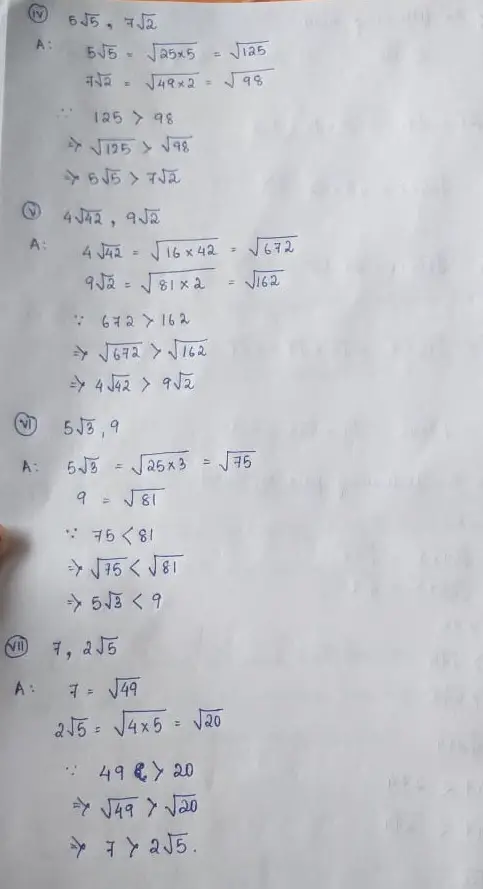 (iv) 5√5, 7√2
A: 5√5 = √25×5 = √125
7√2 = √49×2 = √98
∵ 125 > 98
⇒ √125 > √98
⇒ 5√5 > 7√2
(v) 4√42, 9√2
A: 4√42 = √16×42 = √672
9√2 = √81×2 = √162
∵ 672 > 162
⇒ √672 > √162
⇒ 4√42 > 9√2
(vi) 5√3, 9
A: 5√3 = √25×3 = √75
9 = √81
∵ 75 < 81
⇒ √75 < √81
⇒ 5√3 < 9
(vii) 7, 2√5
A: 7 = √49
2√5 = √4×5 = √20
∵ 49 > 20
⇒ √49 > √20
⇒ 7 > 2√5.